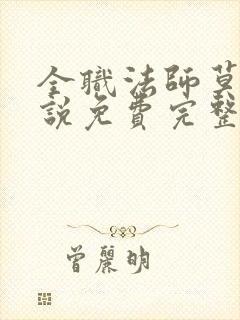 全職法師莫
說免費完整
曾麗明